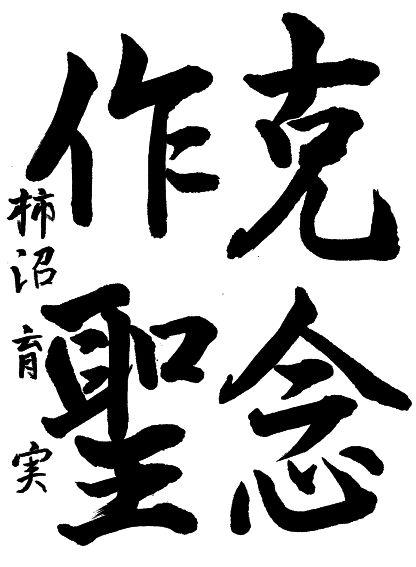 克念
作聖
柿沼育実